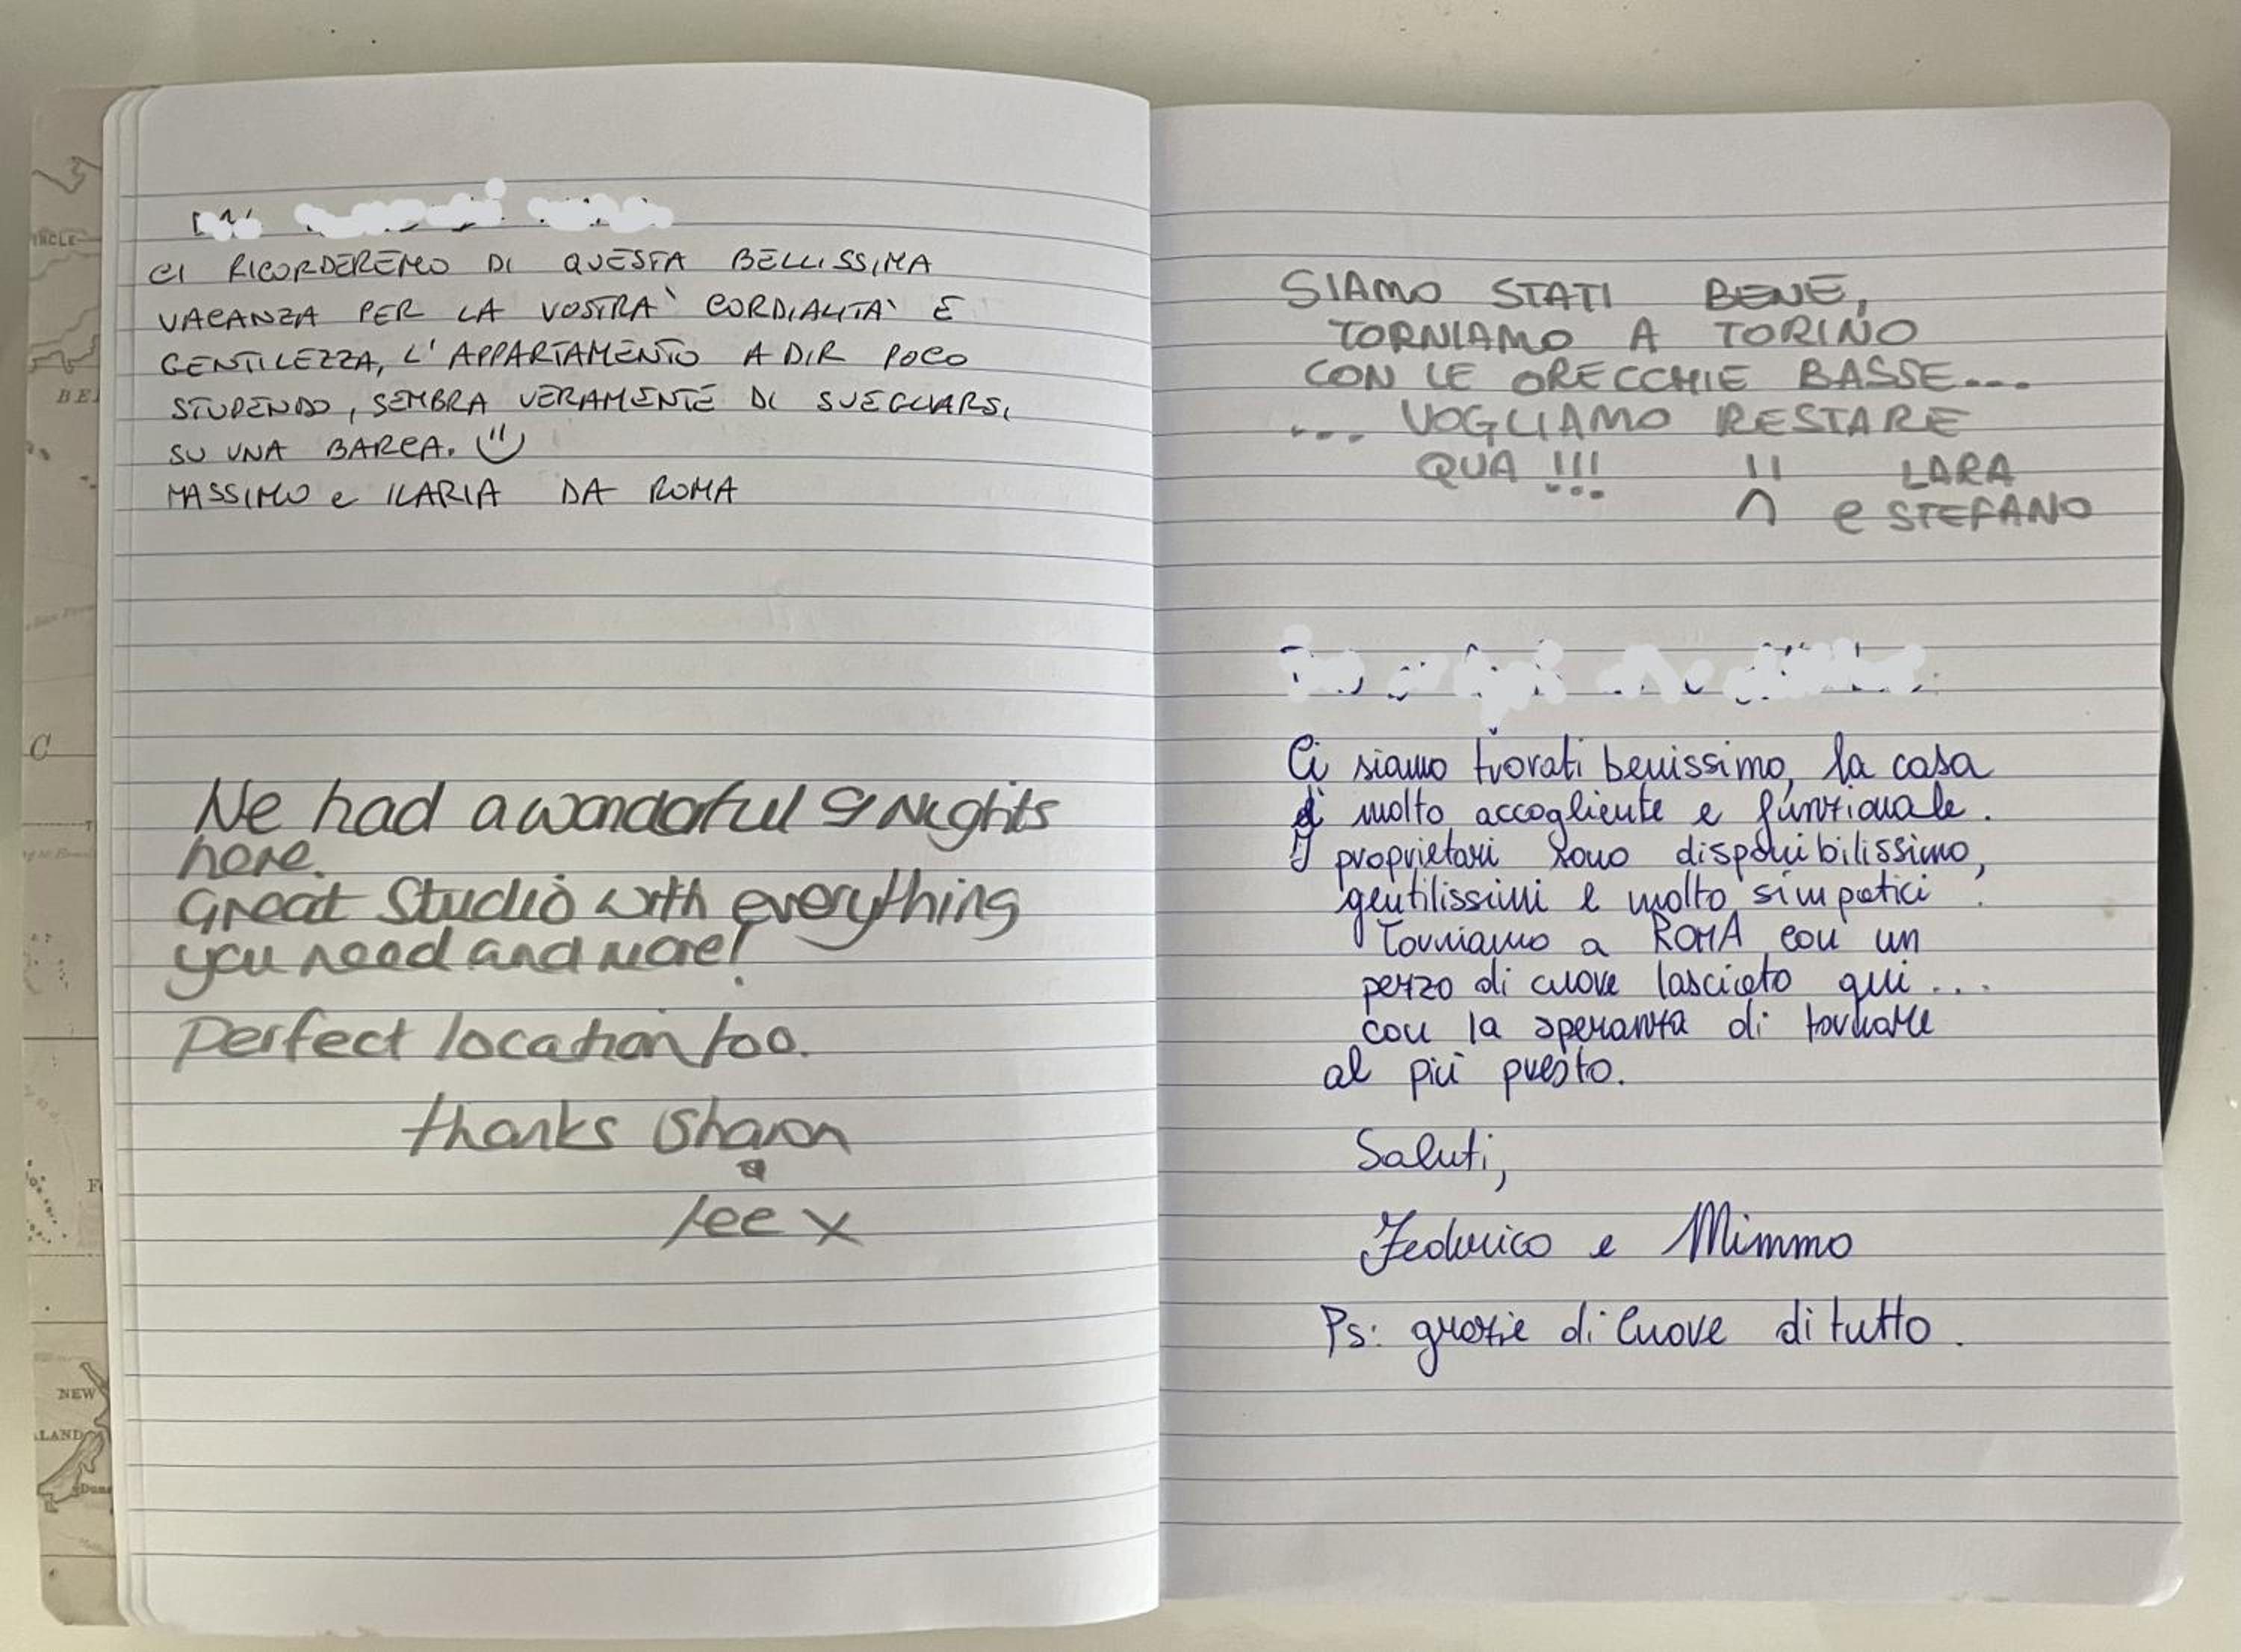 CI RICORDEREMO DI QUESTA BELLISSIMA
VACANZA PER LA VOSTRA` CORDIALITA` E
GENTILEZZA, L'APPARTAMENTO A DIR POCO
STUPENDO, SEMBRA VERAMENTE DI SVEGLIARSI
SU UNA BARCA.
MASSIMO e ILARIA DA ROMA
We had a wonderful 9 Nights
here.
Great Studio with everything
you need and more!
Perfect location too.
thanks Sharon
&
Lee x
SIAMO STATI BENE,
TORNIAMO A TORINO
CON LE ORECCHIE BASSE...
... VOGLIAMO RESTARE
QUA !!! LARA
e STEFANO
Ci siamo trovati benissimo, la casa
è molto accogliente e funzionale.
I proprietari sono disponibilissimo,
gentilissimi e molto simpatici.
Torniamo a ROMA con un
pezzo di cuore lasciato qui...
con la speranza di tornare
al più presto.
Saluti,
Federico e Mimmo
Ps: grazie di Cuore di tutto.
INCLE
BE
C
F
NEW
LAND